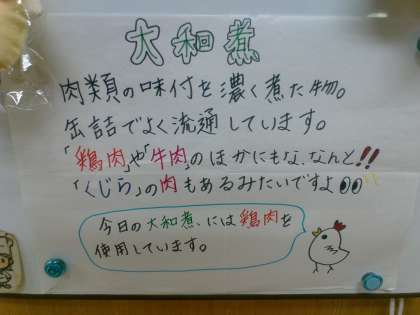 大和煮
肉類の味付を濃く煮た物。
缶詰でよく流通しています。
「鶏肉」や「牛肉」のほかにもな、なんと!!
「くじら」の肉もあるみたいですよ
今日の大和煮、には鶏肉を
使用しています。